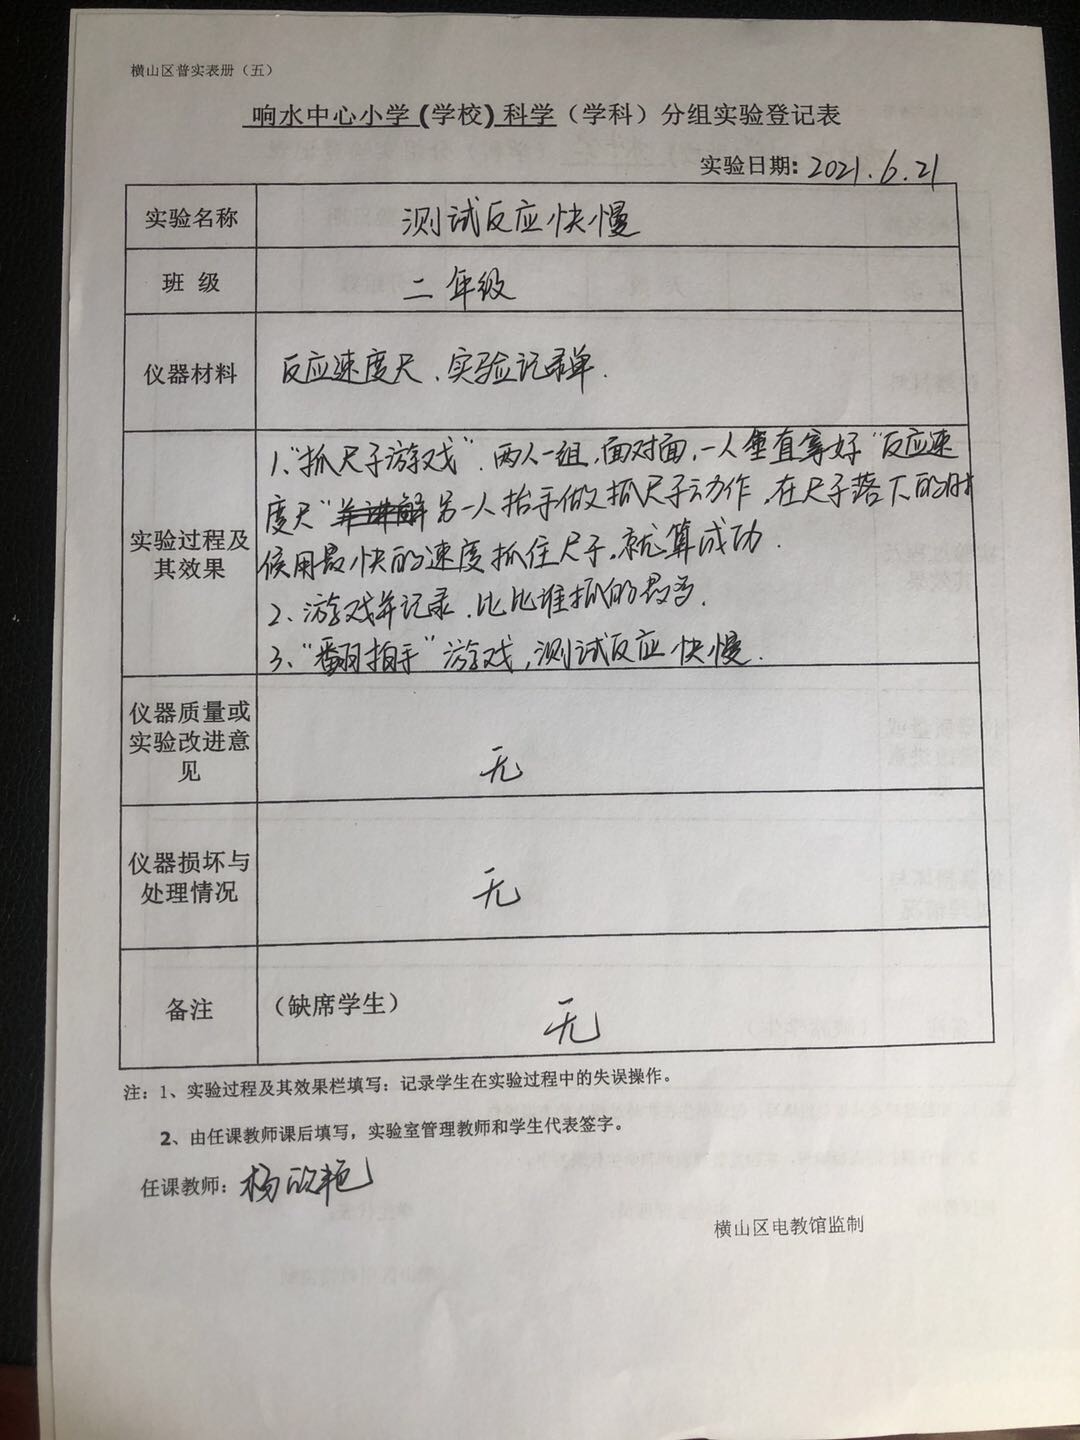 横山区普实表册（五）
响水中心小学 (学校) 科学（学科）分组实验登记表
实验日期: 2021.6.21
实验名称 测试反应快慢
班 级 二年级
仪器材料 反应速度尺、实验记录单.
实验过程及其效果
1、"抓尺子游戏".两人一组,面对面,一人垂直拿好"反应速
度尺"另一人抬手做抓尺子动作,在尺子落下的时
候用最快的速度抓住尺子,就算成功.
2、游戏并记录,比比谁抓的最多.
3、"翻拍手"游戏,测试反应快慢.
仪器质量或
实验改进意
见
无
仪器损坏与
处理情况
无
备注 （缺席学生） 无
注：1、实验过程及其效果栏填写：记录学生在实验过程中的失误操作。
2、由任课教师课后填写，实验室管理教师和学生代表签字。
任课教师: 杨欣艳
横山区电教馆监制